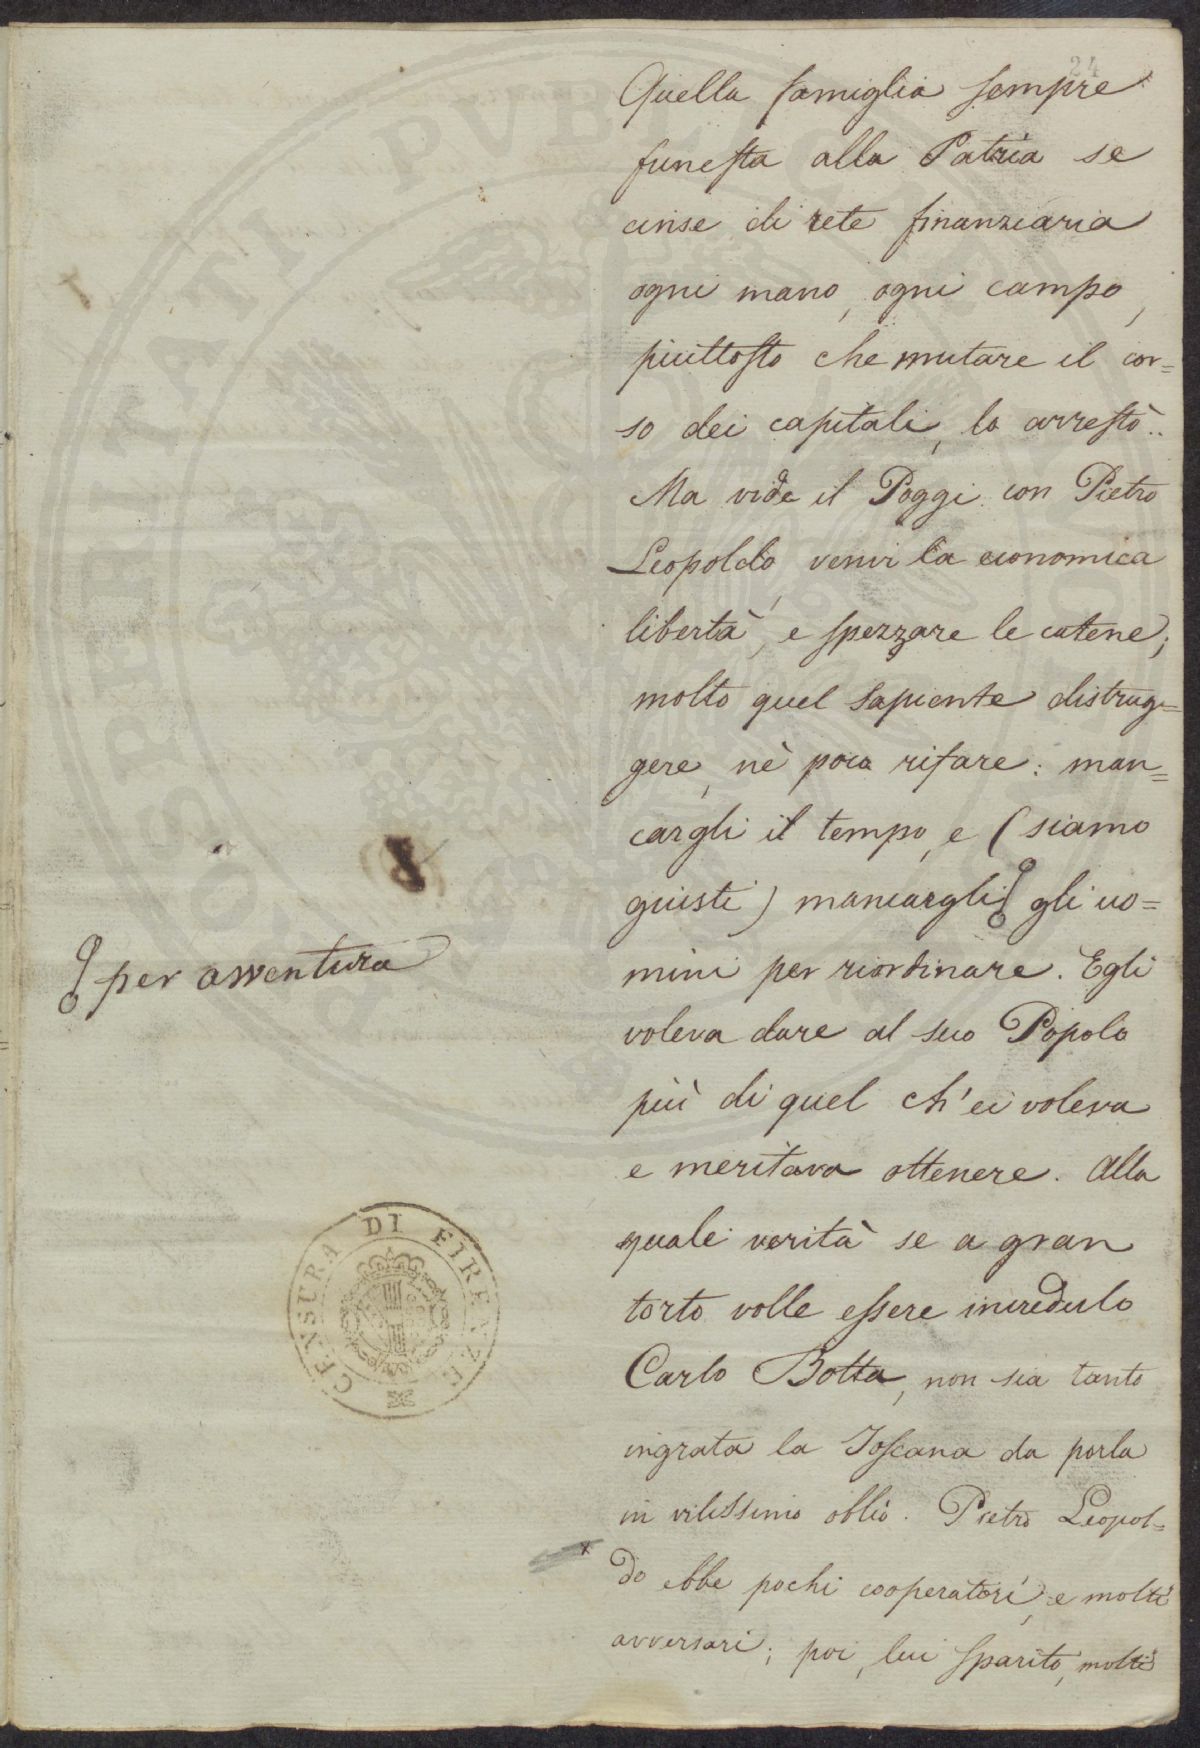 24
Quella famiglia sempre
funesta alla Patria se
cinse di rete finanziaria
ogni mano, ogni campo,
piuttosto che mutare il cor=
so dei capitali, lo arrestò..
Ma vide il Poggi con Pietro
Leopoldo, venir la economica
libertà, e spezzare le catene;
molto quel Sapiente distrug=
gere, nè poco rifare: man=
cargli il tempo, e (siamo
giusti) mancargli gli uo=
mini per riordinare. Egli
voleva dare al suo Popolo
più di quel ch'ei voleva
e meritava ottenere. Alla
quale verità se a gran
torto volle essere incredulo
Carlo Botta, non sia tanto
ingrata la Toscana da porla
in vilissimo obblio. Pietro Leopol=
do ebbe pochi cooperatori, e molti
avversari; poi, lui sparito, molti
per avventura
CENSURA DI FIRENZE